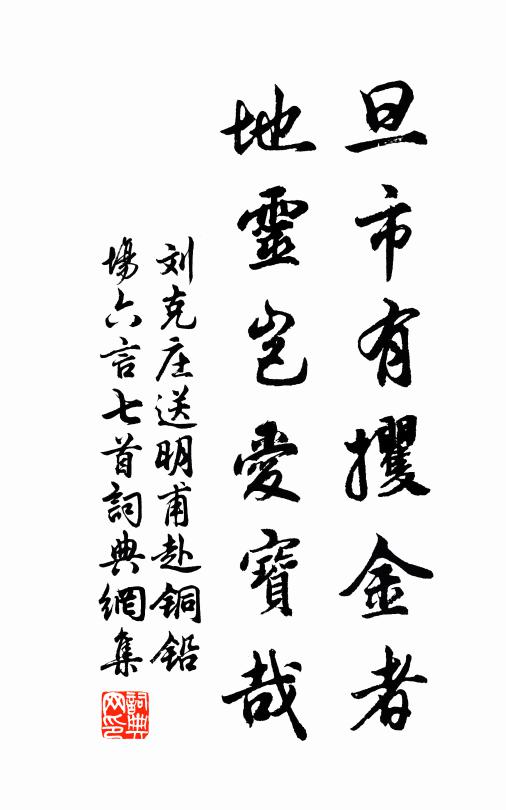 旦市有攫金者
地靈豈愛寶哉
刘克庄送明甫赴铜铅
場六言七首詞典網集
詞典网印